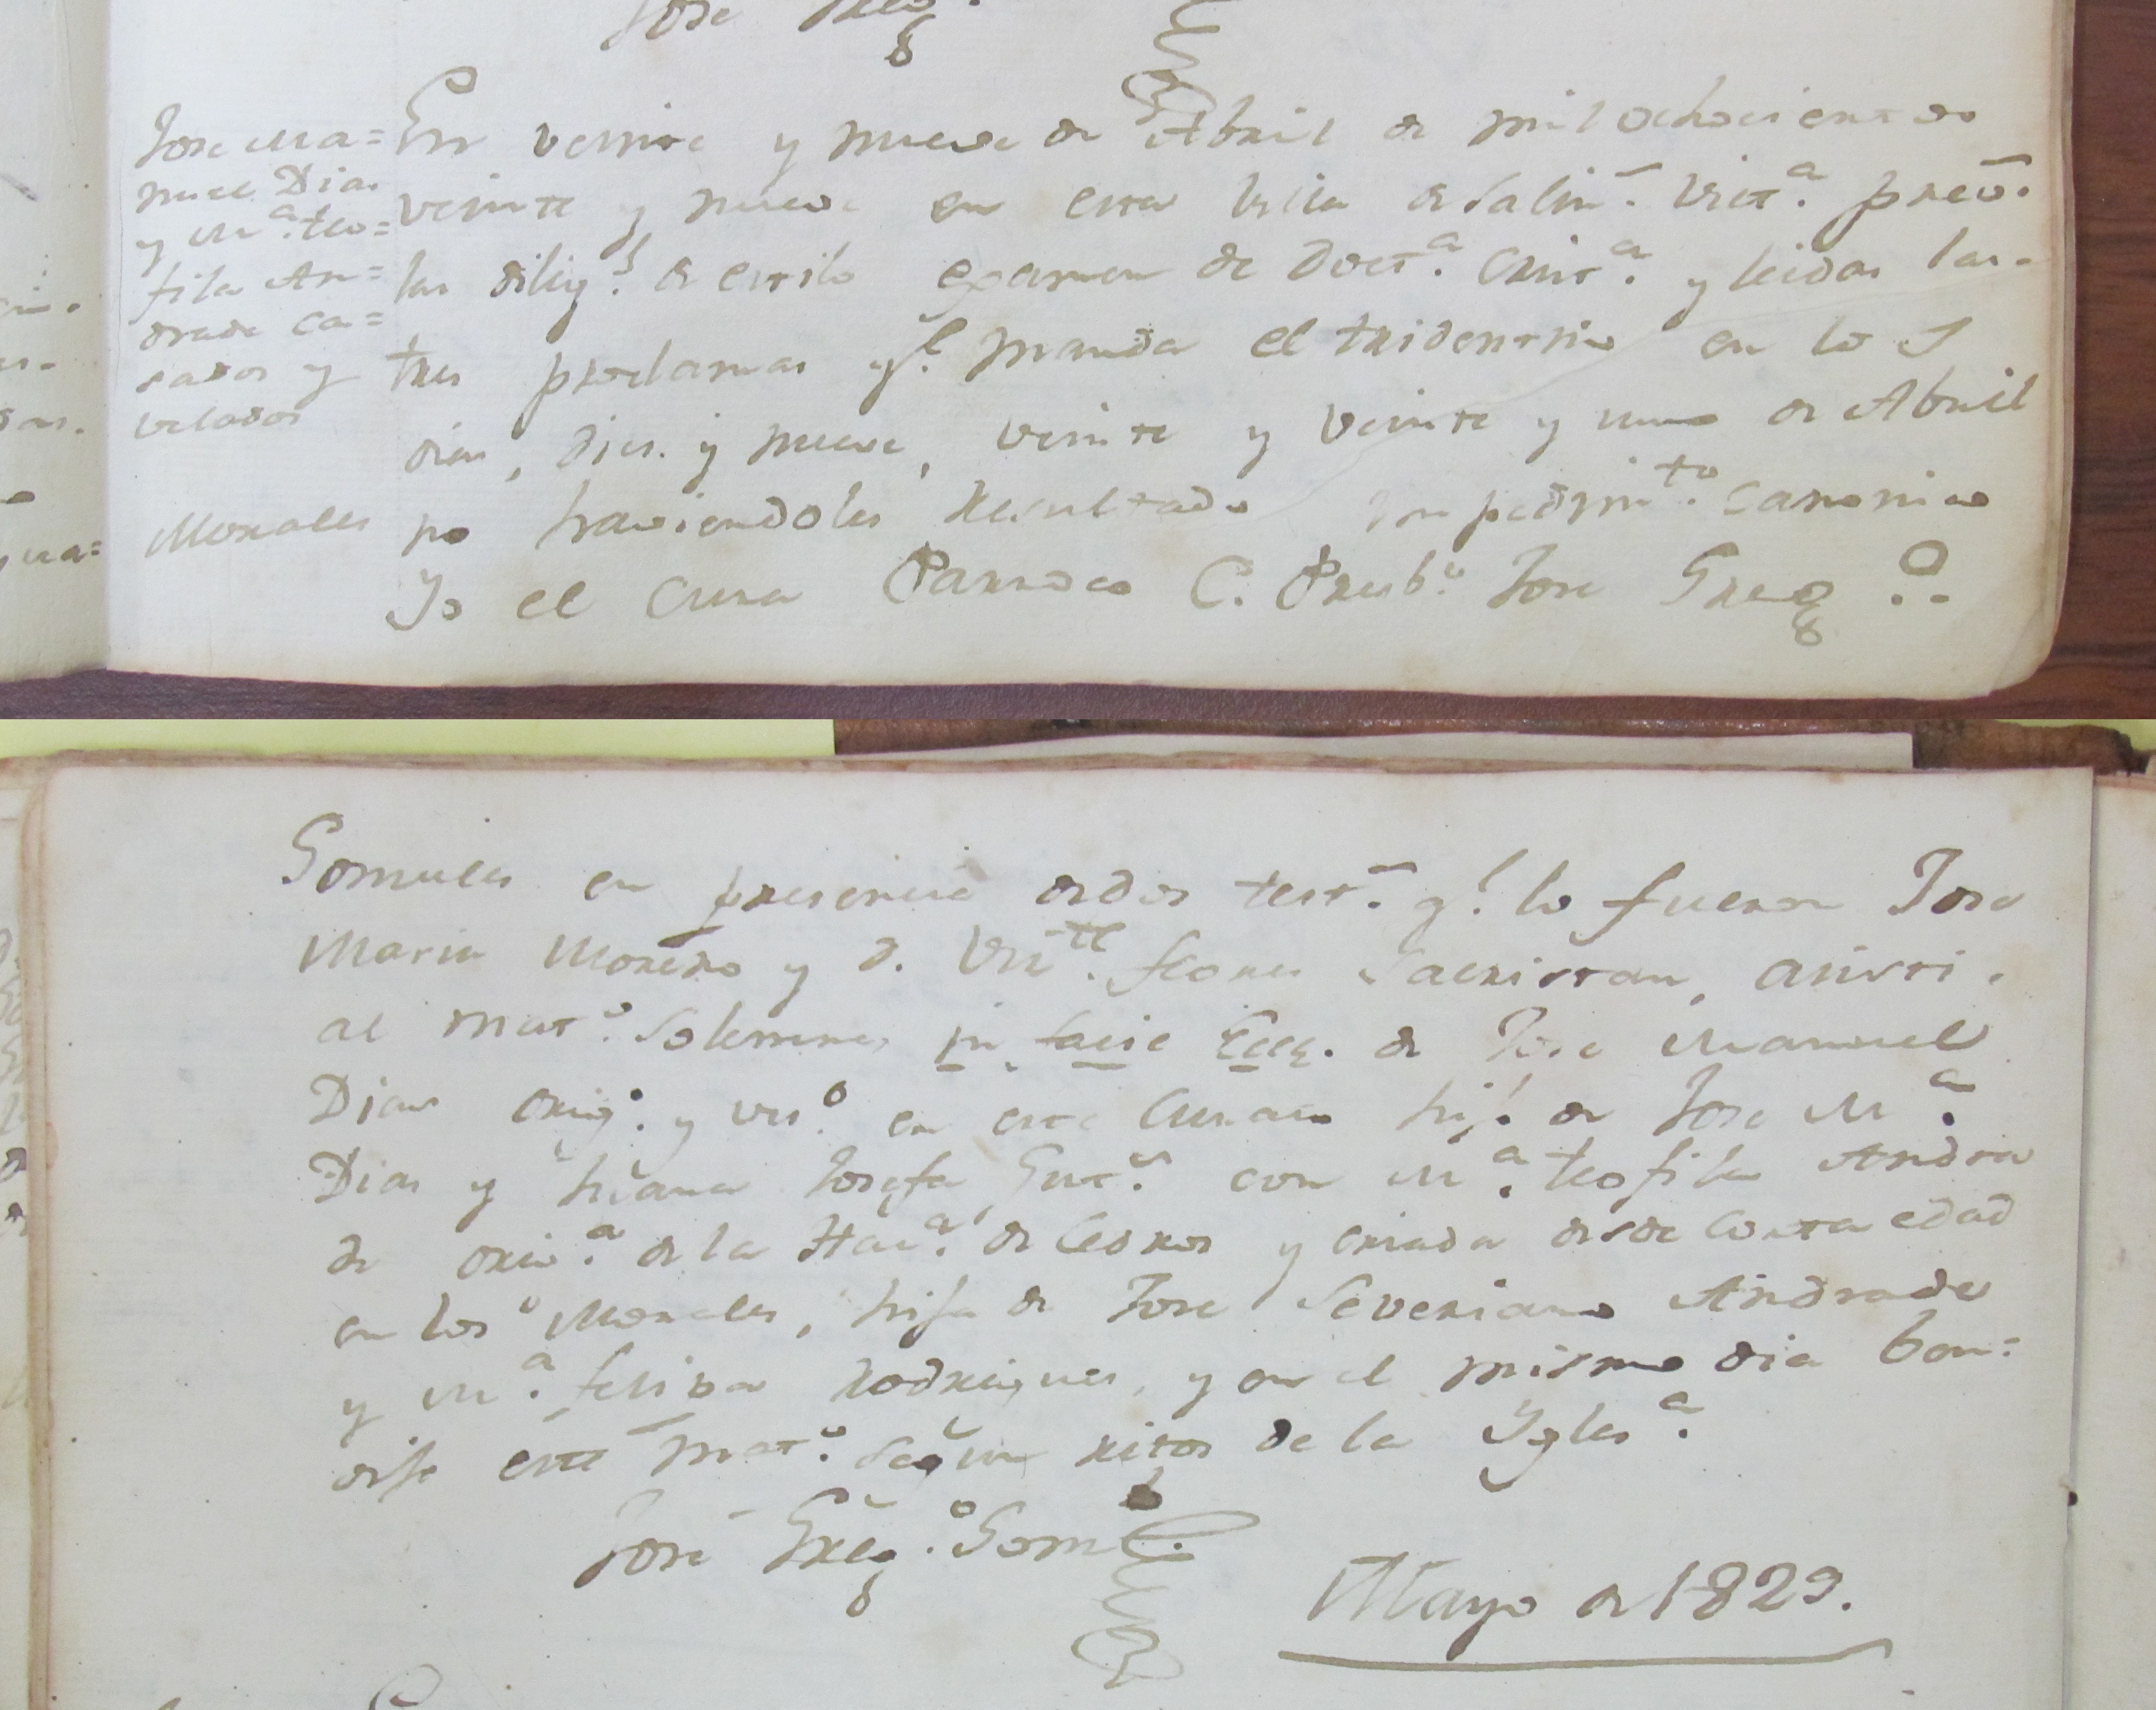 Jose
Jose Ma=
nuel Dias
y M.ª teo=
fila An=
drade ca=
sados y
velados
Morales
En veinte y nueve de Abril de mil ochocientos
veinte y nueve en esta Villa de Salin.ˢ Vict.ª prev.
las dilig.ˢ de estilo examen de Doct.ª Crist.ª y leidas las
tres proclamas q.ᵉ manda el tridentino en lo s
dias, dies y nueve, veinte y veinte y uno de Abril
no haviendoles resultado impedim.ᵗᵒ canonico
Yo el Cura Parroco C. Presb.º Jose Greg.º
Gonsales en presencia de dos test.ˢ q.ᵉ lo fueron Jose
Maria Moreno y d. Vis.ᵗᵉ flores Sacristan, asisti
al mat.º Solemne, in facie Ecce. de Jose Manuel
Dias orig.º y ves.º en este Curato hij.º de Jose M.ª
Dias y Juana Josefa Gut.ˢ con M.ª teofila Andra
de orig.ª de la Hac.ª de Cedros y criada desde corta edad
en los Morales, hija de Jose Severiano Andrade
y M.ª felipa Rodrigues, y en el mismo dia ben=
dije este mat.º segun ritos de la Ygles.ª
José Greg.º Gom.
Mayo de 1829.